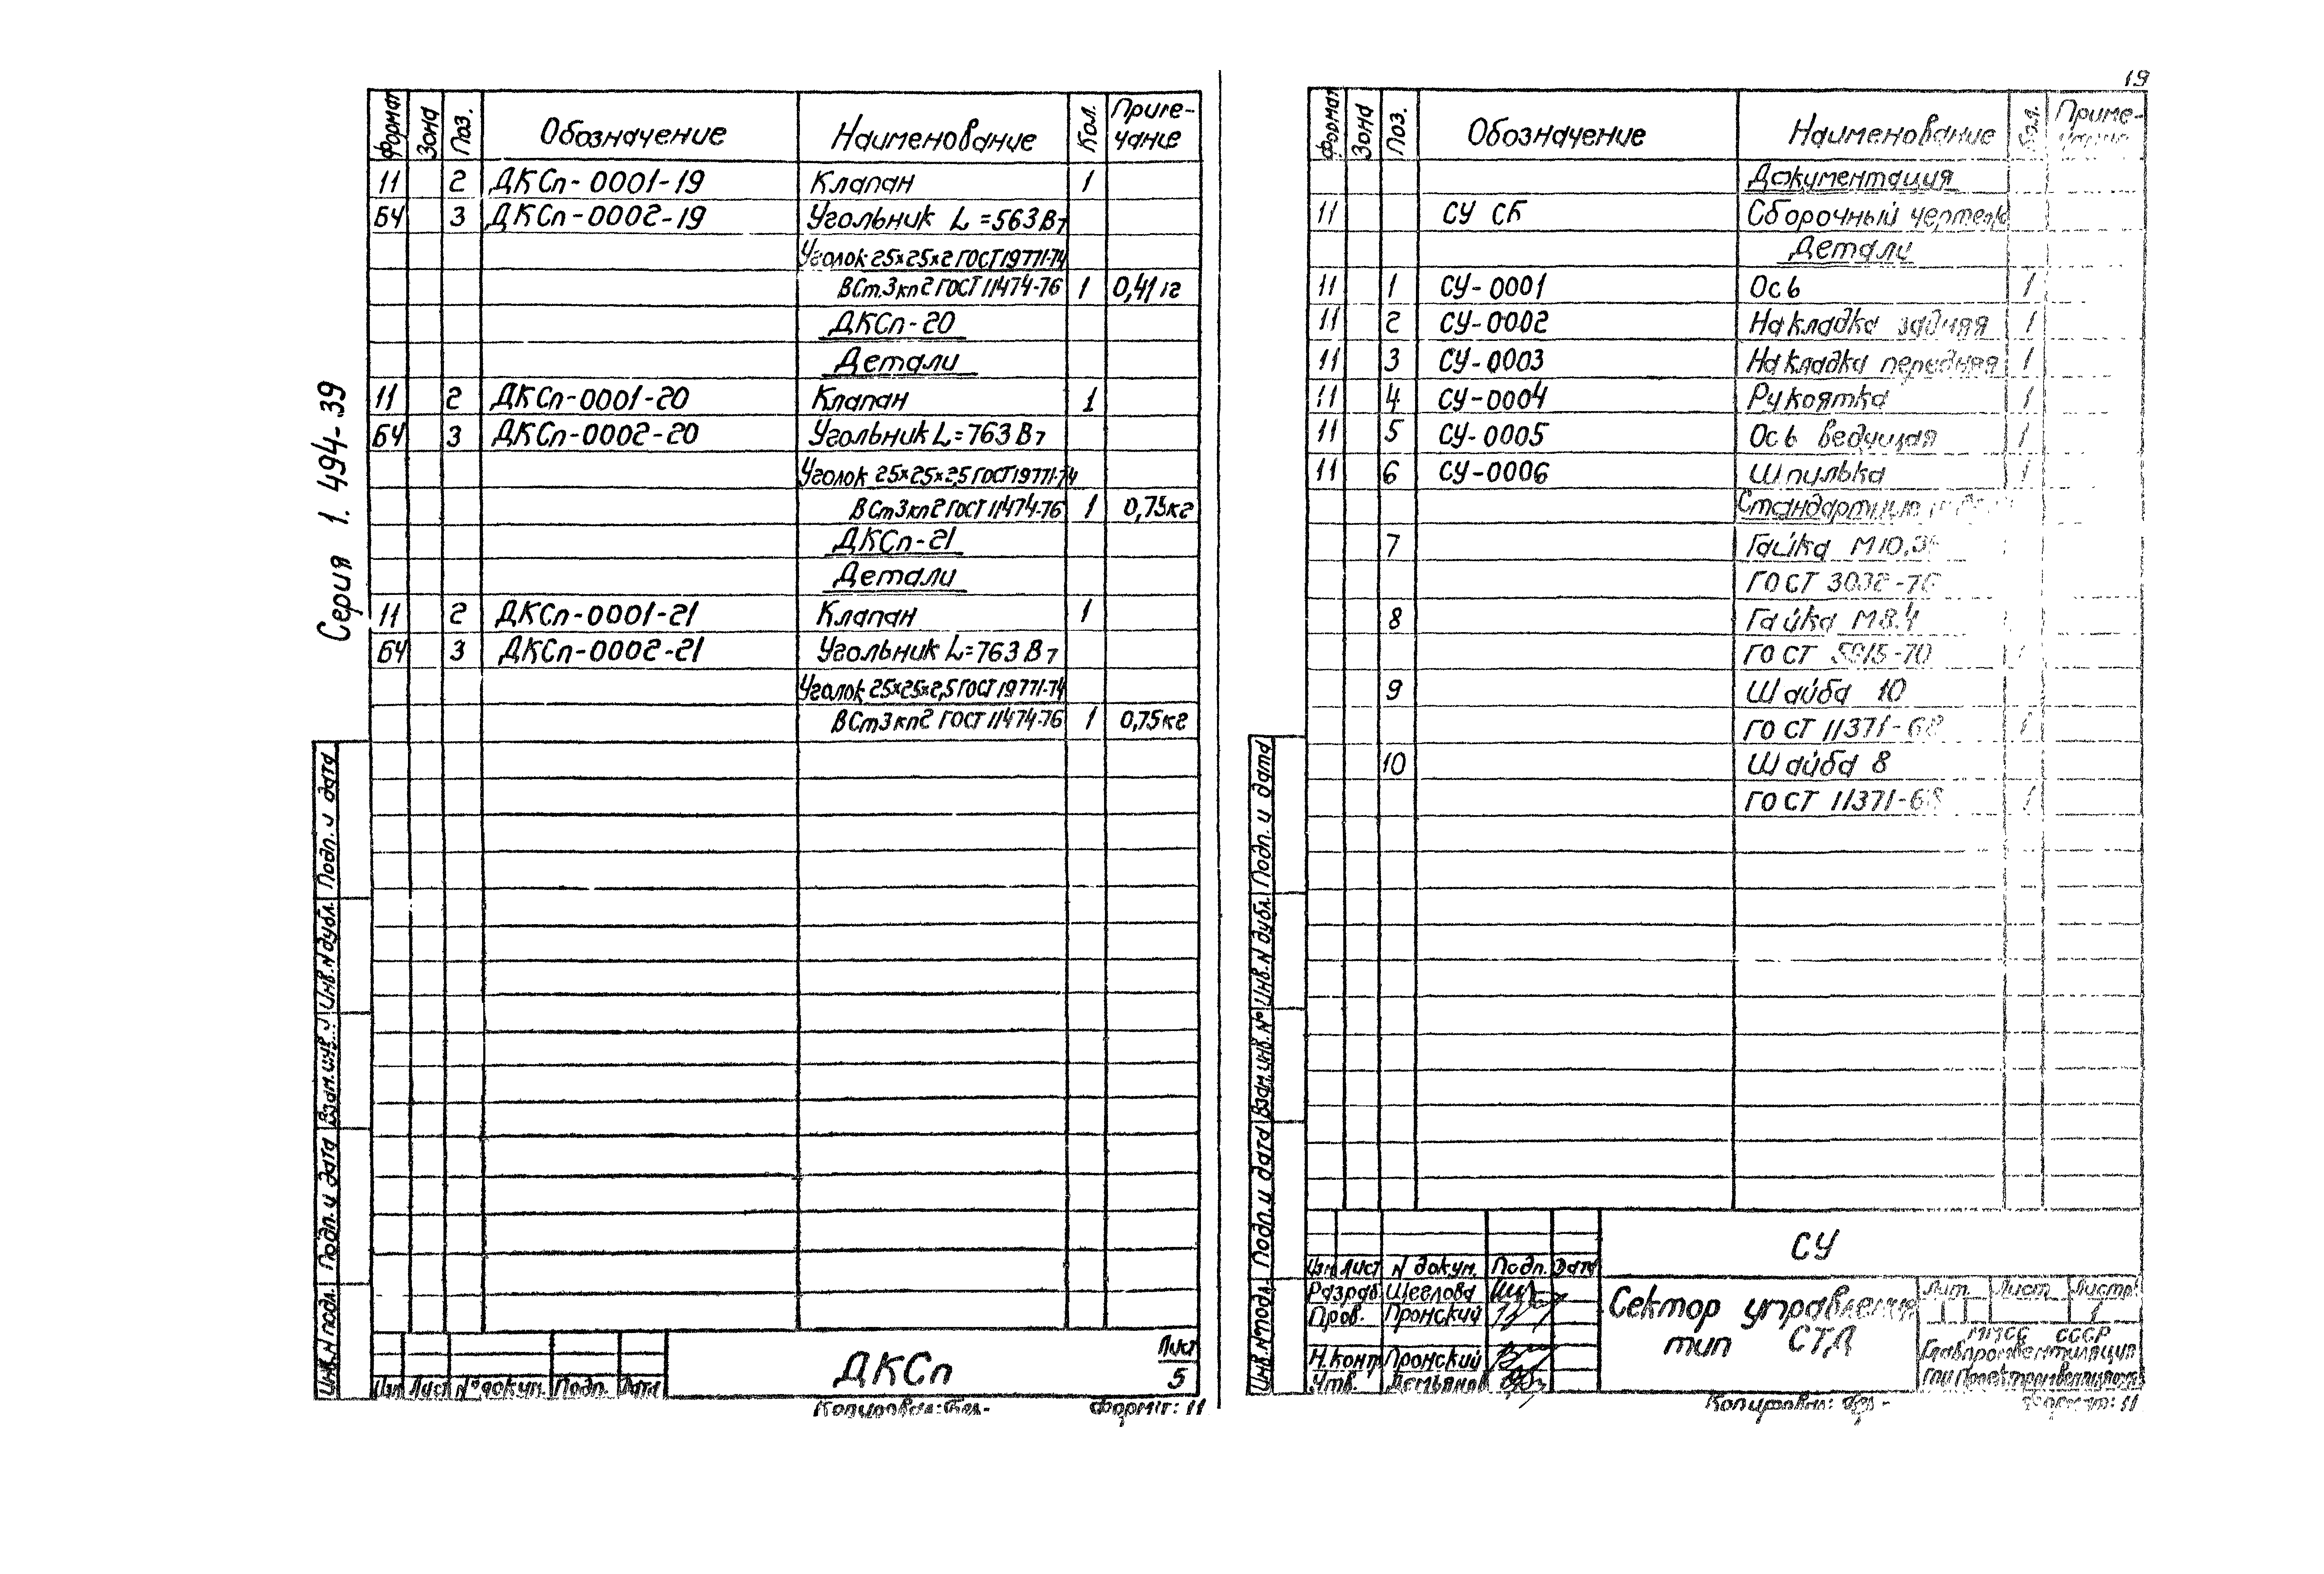 19
Серия 1.494-39
Формат Зона Поз. Обозначение Наименование Кол. Приме-
чание
11 2 ДКСп-0001-19 Клапан 1
БЧ 3 ДКСп-0002-19 Угольник L=563 В7
Уголок 25×25×2 ГОСТ 19771-74
ВСт.3кп2 ГОСТ 11474-76 1 0,41 кг
ДКСп-20
Детали
11 2 ДКСп-0001-20 Клапан 1
БЧ 3 ДКСп-0002-20 Угольник L=763 В7
Уголок 25×25×2,5 ГОСТ 19771-74
ВСт3кп2 ГОСТ 11474-76 1 0,75кг
ДКСп-21
Детали
11 2 ДКСп-0001-21 Клапан 1
БЧ 3 ДКСп-0002-21 Угольник L=763 В7
Уголок 25×25×2,5 ГОСТ 19771-74
ВСт3кп2 ГОСТ 11474-76 1 0,75кг
Подп. и дата
Инв.N дубл.
Взам.инв.
Подп. и дата
Инв.N подл.
Изм Лист N° докум. Подп. Дата
ДКСп
Лист
5
Копировал: Формат: 11
Формат Зона Поз. Обозначение Наименование Кол. Приме-
чание
Документация
11 СУ СБ Сборочный чертеж
Детали
11 1 СУ-0001 Ось 1
11 2 СУ-0002 Накладка задняя 1
11 3 СУ-0003 Накладка передняя 1
11 4 СУ-0004 Рукоятка 1
11 5 СУ-0005 Ось ведущая 1
11 6 СУ-0006 Шпилька 1
Стандартные
7 Гайка
ГОСТ 3032-76
8 Гайка М8.4
ГОСТ 5915-70
9 Шайба 10
ГОСТ 11371-68 1
10 Шайба 8
ГОСТ 11371-68 1
Подп. и дата
Инв.N дубл.
Взам.инв.N°
Подп. и дата
Инв.N°подл.
СУ
Изм Лист N докум. Подп. Дата
Разраб. Щеглова
Пров. Пронский
Н.контр Пронский
Утв. Демьянов
Сектор управления
тип СТД
Лит. Лист Листов
1
ММСС СССР
Главпромвентиляция
ГПИ Проектпромвентиляция
Копировал: Формат: 11